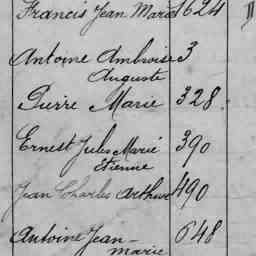 Francis Jean Marie 1624
Antoine Ambroise 3
Auguste
Pierre Marie 328.
Ernest Jules Marie 390
Etienne
Jean Charles Arthur 490
Antoine Jean- 648
marie